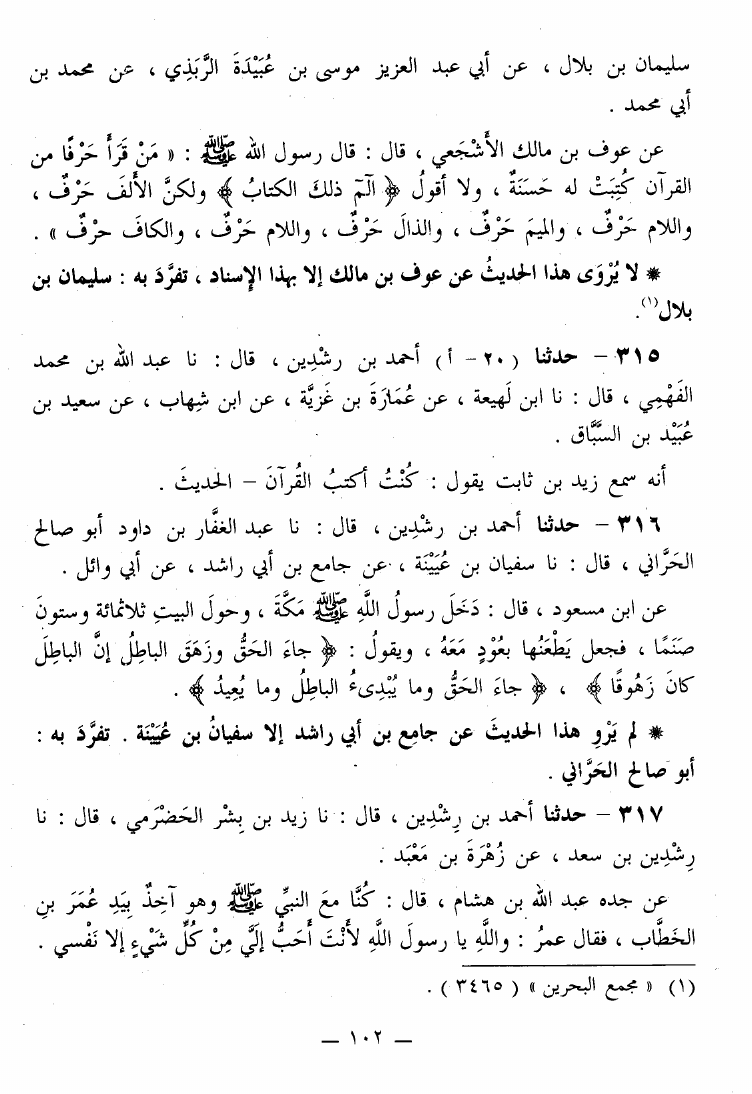 سليمان بن بلال ، عن أبي عبد العزيز موسى بن عُبَيْدَةَ الرَّبَذِي ، عن محمد بن
أبي محمد .
عن عوف بن مالك الأَشْجَعي ، قال : قال رسول الله ﷺ : « مَنْ قَرَأَ حَرْفًا من
القرآن كُتِبَتْ له حَسَنَةٌ ، ولا أقولُ ﴿ الٓمٓ ذلكَ الكتابُ ﴾ ولكنَّ الأَلفَ حَرْفٌ ،
واللام حَرْفٌ ، والميمَ حَرْفٌ ، والذالَ حَرْفٌ ، واللام حَرْفٌ ، والكافَ حرْفٌ » .
* لا يُرْوَى هذا الحديثُ عن عوف بن مالك إلا بهذا الإسناد ، تفرَّدَ به : سليمان بن
بلال(١).
٣١٥ – حدثنا (٢٠ – أ) أحمد بن رشْدِين ، قال : نا عبد الله بن محمد
الفَهْمِي ، قال : نا ابن لَهيعة ، عن عُمَارَةَ بن غَزِيَّة ، عن ابن شِهاب ، عن سعيد بن
عُبَيْد بن السَّبَّاق .
أنه سمع زيد بن ثابت يقول : كُنْتُ أكتبُ القُرآنَ – الحديثَ .
٣١٦ – حدثنا أحمد بن رشْدِين ، قال : نا عبد الغفَّار بن داود أبو صالح
الحَرَّاني ، قال : نا سفيان بن عُيَيْنَة ، عن جامع بن أبي راشد ، عن أبي وائل .
عن ابن مسعود ، قال : دَخَلَ رسولُ اللَّهِ ﷺ مَكَّةَ ، وحولَ البيتِ ثلاثمائة وستونَ
صَنَمًا ، فجعل يَطْعَنُها بعُودٍ مَعَهُ ، ويقولُ : ﴿ جاءَ الحَقُّ وزَهَقَ الباطِلُ إنَّ الباطِلَ
كانَ زَهُوقًا ﴾ ، ﴿ جاءَ الحَقُّ وما يُبْدِىءُ الباطِلُ وما يُعِيدُ ﴾ .
* لم يَرْوِ هذا الحديثَ عن جامِع بن أبي راشد إلا سفيانُ بن عُيَيْنَة . تفرَّدَ به :
أبو صالح الحَرَّاني .
٣١٧ – حدثنا أحمد بن رِشْدِين ، قال : نا زيد بن بِشْر الحَضْرَمي ، قال : نا
رِشْدِين بن سعد ، عن زُهْرَةَ بن مَعْبَد .
عن جده عبد الله بن هشام ، قال : كُنَّا معَ النبيِّ ﷺ وهو آخِذٌ بِيَدِ عُمَرَ بنِ
الخَطَّاب ، فقال عمرُ : واللَّهِ يا رسولَ اللَّهِ لأَنْتَ أَحَبُّ إلَيَّ مِنْ كُلِّ شَيْءٍ إلا نَفْسي .
(١) « مجمع البحرين » ( ٣٤٦٥ ) .
— ١٠٢ —